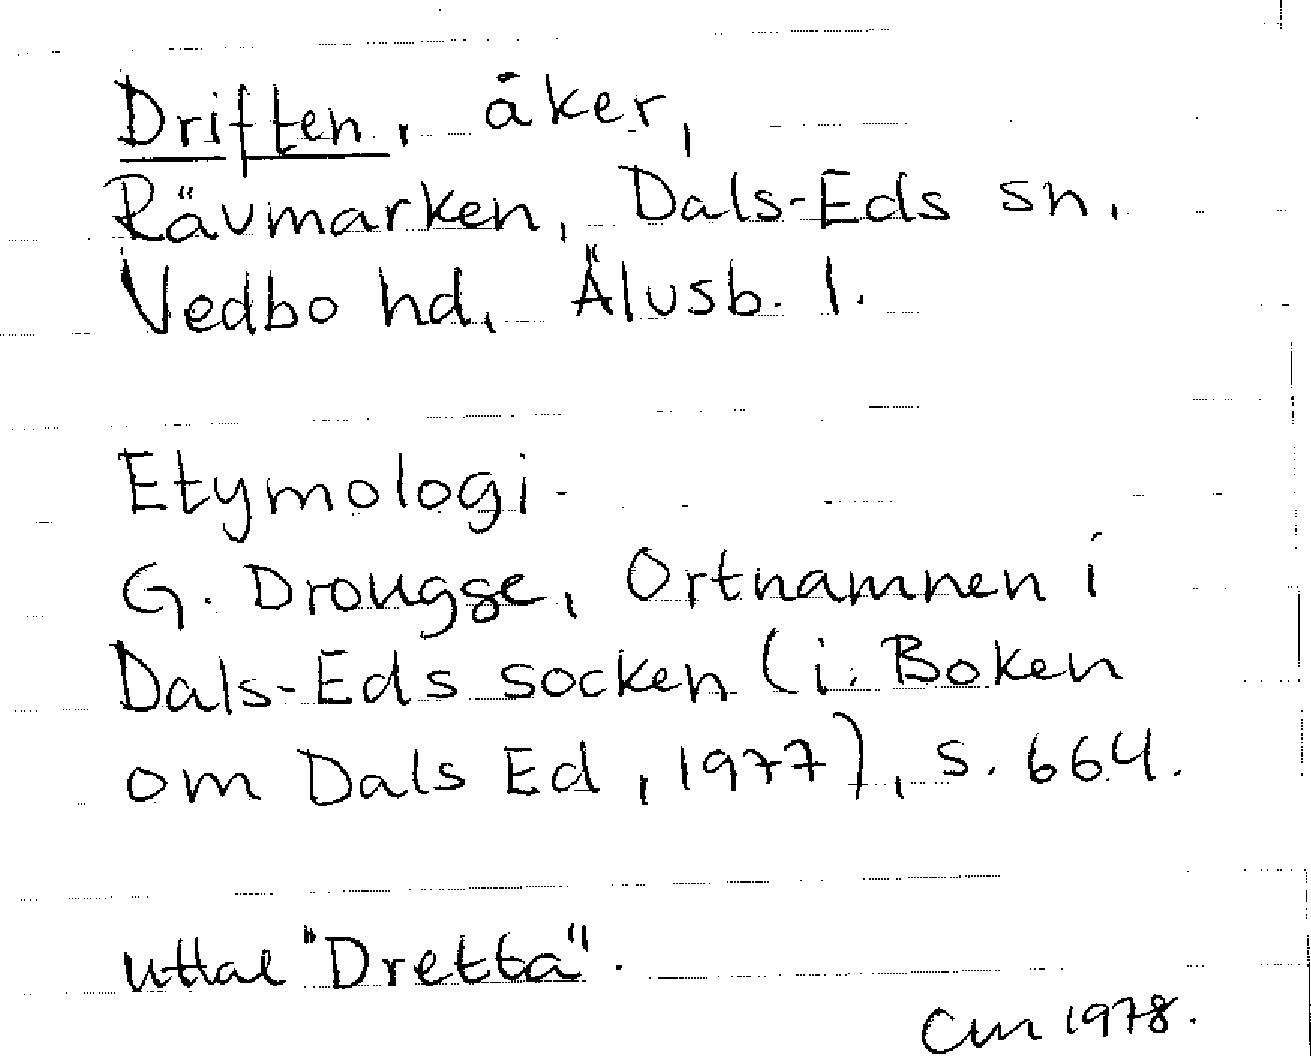 Driften, åker,
Rävmarken, Dals-Eds sn,
Vedbo hd, Älvsb. l.
Etymologi.
G. Drougge, Ortnamnen i
Dals-Eds socken (i: Boken
om Dals Ed, 1977), s. 664.
uttal "Dretta".
CM 1978.